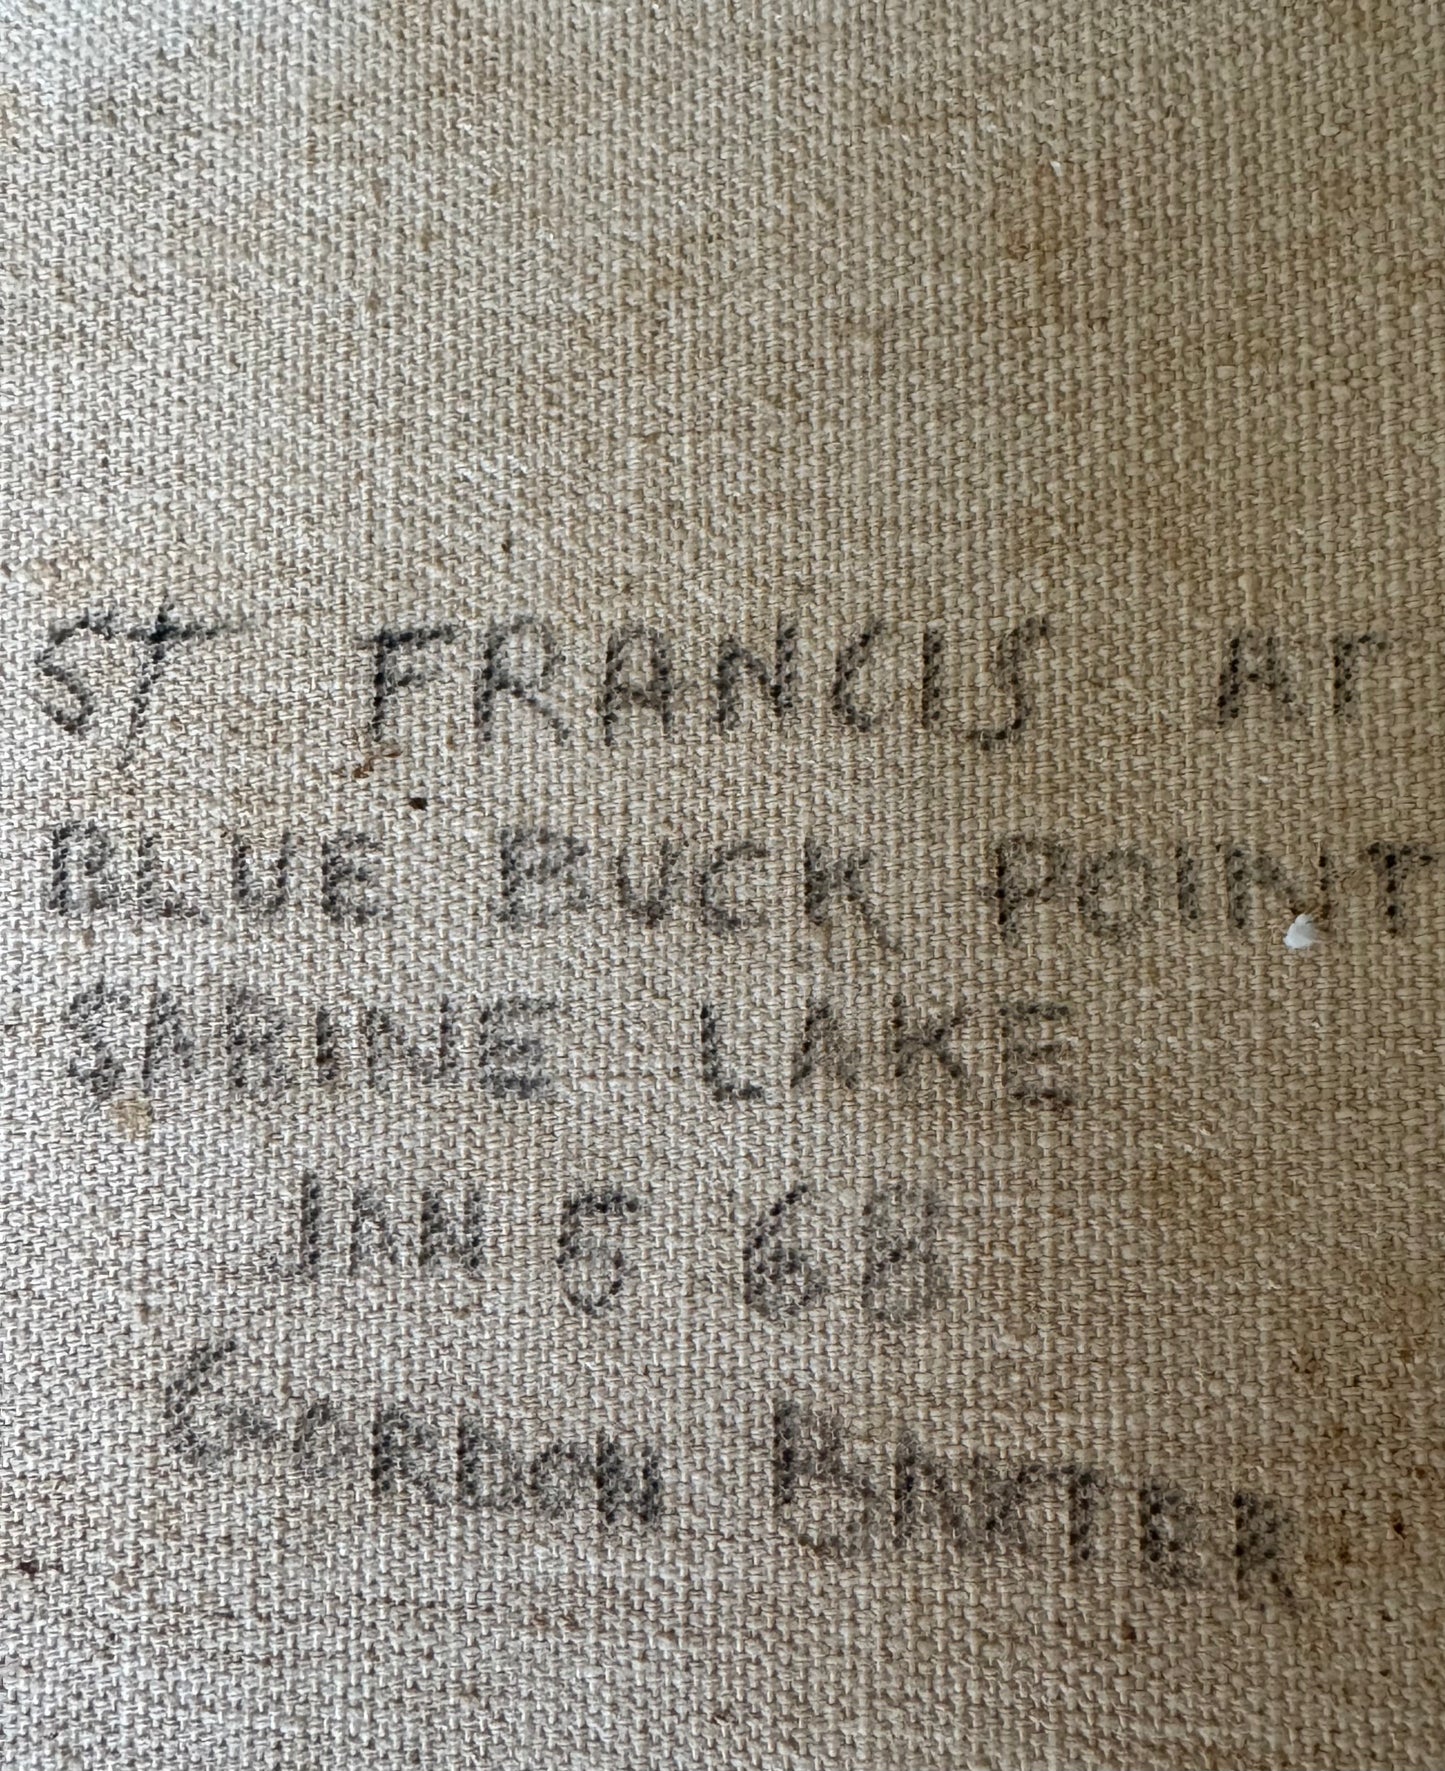 ST FRANCIS AT
BLUE BUCK POINT
SABINE LAKE
JAN 5 68
GORDON BAXTER